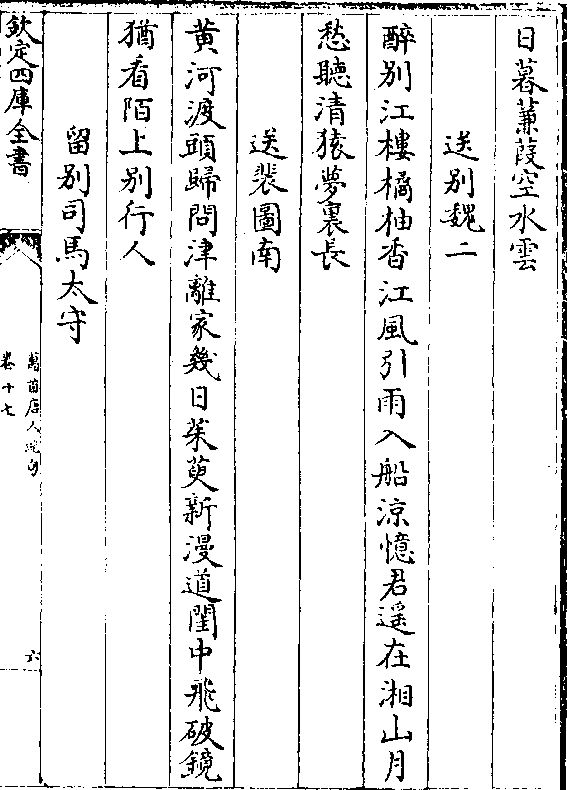 日暮蒹葭空水雲
送别魏二
醉别江樓橘柚香江風引雨入船涼憶君遥在湘山月
愁聽清猿夢裏長
送裴圖南
黄河渡頭歸問津離家幾日茱萸新漫道閨中飛破鏡
猶看陌上别行人
留别司馬太守
欽定四庫全書
萬首唐人絶句
卷十七
六